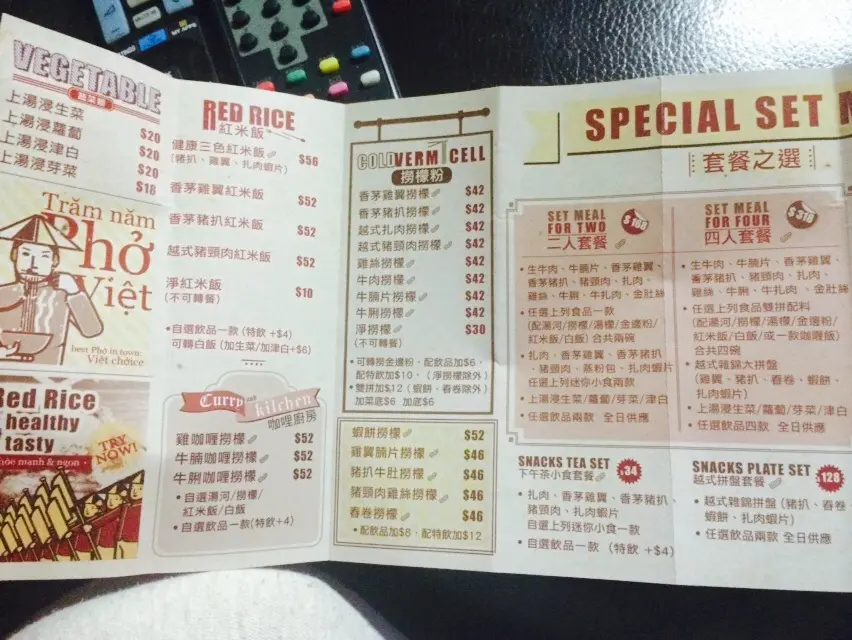 VEGETABLE
上湯浸生菜 $20
上湯浸蘿蔔 $20
上湯浸津白 $20
上湯浸芽菜 $18
Trăm năm
Phở
Việt
best Phở in town:
Việt chôice
Red Rice
healthy
tasty
TRY
NOW!
khỏe mạnh & ngon
RED RICE
紅米飯
健康三色紅米飯 $56
(豬扒、雞翼、扎肉蝦片)
香茅雞翼紅米飯 $52
香茅豬扒紅米飯 $52
越式豬頸肉紅米飯 $52
淨紅米飯 $10
(不可轉餐)
•自選飲品一款 (特飲 +$4)
可轉白飯 (加生菜/加津白+$6)
Curry kitchen
咖哩廚房
雞咖哩撈檬 $52
牛腩咖哩撈檬 $52
牛脷咖哩撈檬 $52
•自選湯河/撈檬/
紅米飯/白飯
•自選飲品一款(特飲+4)
COLD VERMICELL
撈檬粉
香茅雞翼撈檬 $42
香茅豬扒撈檬 $42
越式扎肉撈檬 $42
越式豬頸肉撈檬 $42
雞絲撈檬 $42
牛肉撈檬 $42
牛腩片撈檬 $42
牛脷撈檬 $42
淨撈檬 $30
(不可轉餐)
•可轉撈金邊粉，配飲品加$6，
配特飲加$10，(淨撈檬除外)
•雙拼加$12 (蝦餅、春卷除外)
加菜底$6 加底$6
蝦餅撈檬 $52
雞翼腩片撈檬 $46
豬扒牛肚撈檬 $46
豬頸肉雞絲撈檬 $46
春卷撈檬 $46
•配飲品加$8，配特飲加$12
SPECIAL SET M
套餐之選
SET MEAL
FOR TWO
二人套餐
$168
•生牛肉、牛腩片、香茅雞翼、
香茅豬扒、豬頸肉、扎肉、
雞絲、牛脷、牛扎肉、金肚絲
•任選上列食品一款
(配湯河/撈檬/湯檬/金邊粉/
紅米飯/白飯) 合共兩碗
•扎肉、香茅雞翼、香茅豬扒
、豬頸肉、蒸粉包、扎肉蝦片
任選上列迷你小食兩款
•上湯浸生菜/蘿蔔/芽菜/津白
•任選飲品兩款 全日供應
SET MEAL
FOR FOUR
四人套餐
$318
•生牛肉、牛腩片、香茅雞翼、
香茅豬扒、豬頸肉、扎肉、
雞絲、牛脷、牛扎肉、金肚絲
•任選上列食品雙拼配料
(配湯河/撈檬/湯檬/金邊粉/
紅米飯/白飯/或一款咖哩飯)
合共四碗
•越式雜錦大拼盤
(雞翼、豬扒、春卷、蝦餅、
扎肉蝦片)
•上湯浸生菜/蘿蔔/芽菜/津白
•任選飲品四款 全日供應
SNACKS TEA SET
下午茶小食套餐
$34
•扎肉、香茅雞翼、香茅豬扒
豬頸肉、扎肉蝦片
自選上列迷你小食一款
•自選飲品一款 (特飲 +$4)
SNACKS PLATE SET
越式拼盤套餐
$128
•越式雜錦拼盤 (豬扒、春卷、
蝦餅、扎肉蝦片)
•任選飲品兩款 全日供應